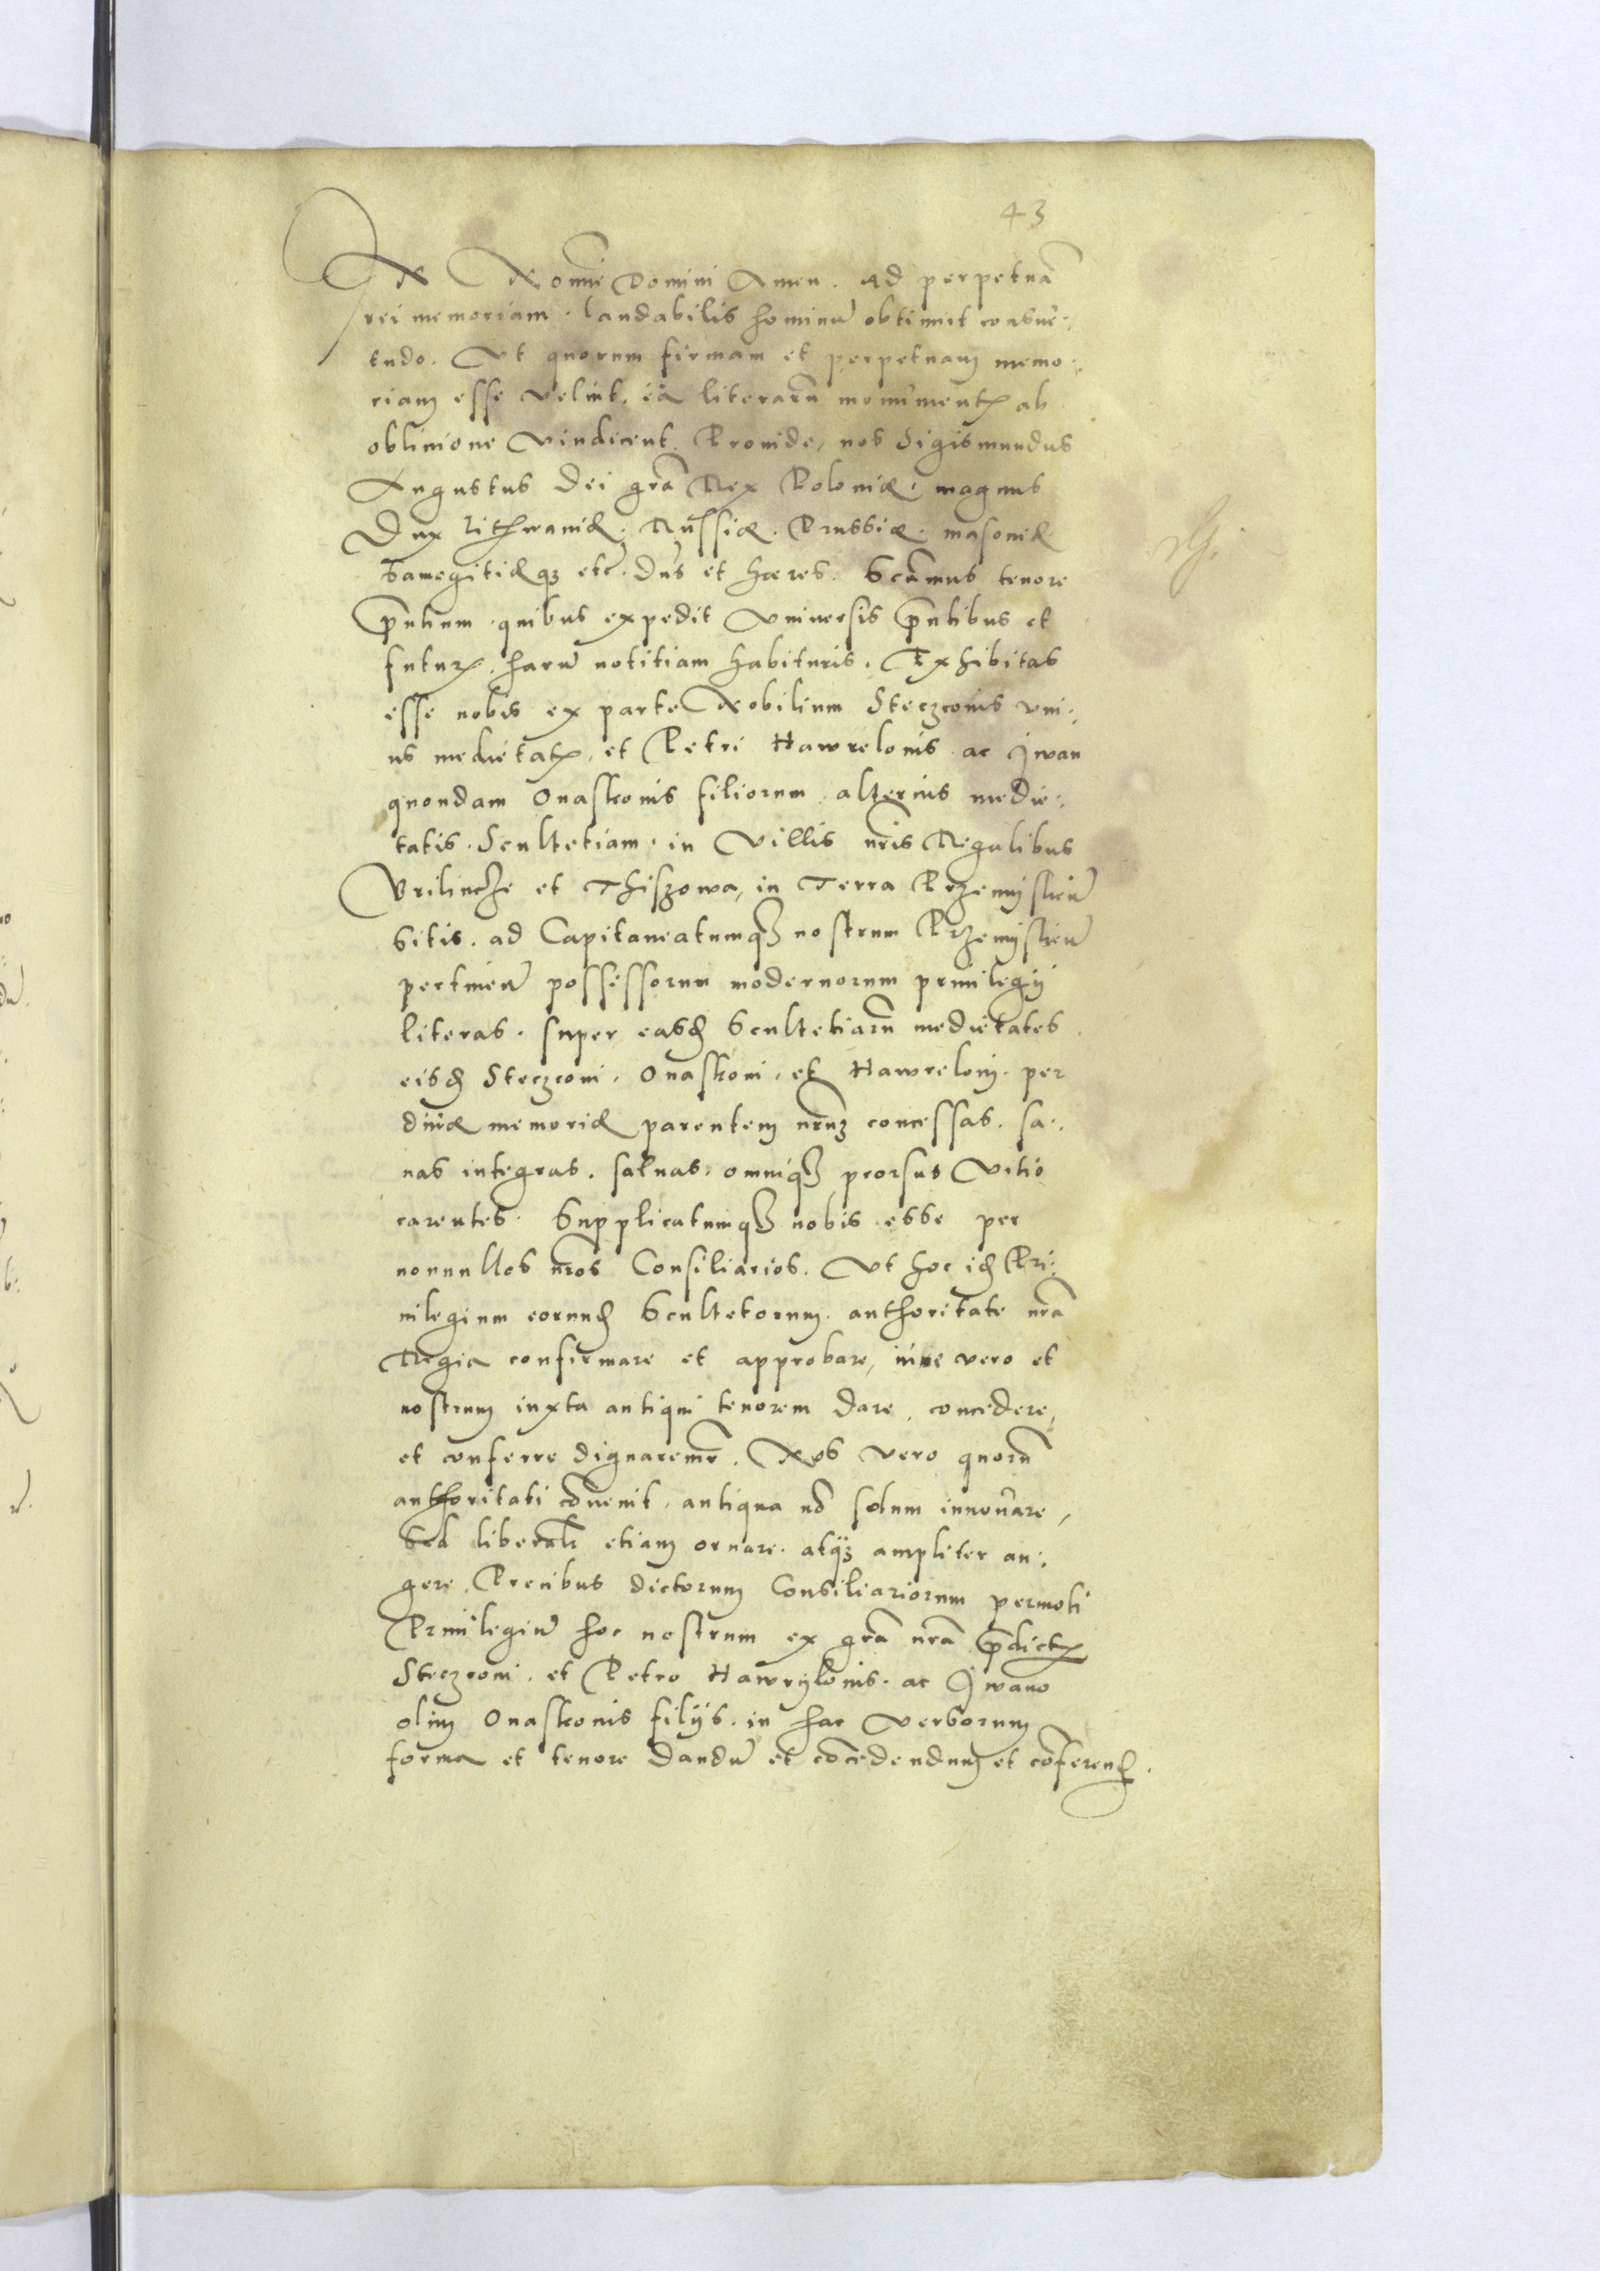 43
IN Nomine Domini Amen. Ad perpetuā
rei memoriam. laudabilis hominū obtinuit consue:
tudo. Ut quorum firmam et perpetuam memo:
riam esse velint, ea literarū monumentis ab
oblivione vindicent. Proinde, nos Sigismundus
Augustus Dei grā Rex Poloniæ, magnus
Dux Lithwaniæ. Russiæ. Prussiæ. masoviæ
Samegitiæqꝫ etc. Dns et hæres. Scāmus tenore
pntium. quibus expedit Universis pntibus et
futuris. harū notitiam habituris. Exhibitas
esse nobis ex parte Nobilium Steczconis uni:
us medietatis, et Petri Hawrelonis ac Iwan
quondam Onaskonis filiorum alterius medie:
tatis. Scultetiam. in Villis nris Regalibus
Urilincze et Thiszowa, in Terra Przemyslień
sitis. ad Capitaneatumqꝫ nostrum Przemyslień
pertineń possessorum modernorum privilegij
literas. super easd Scultetiarū medietates
eisd Steczconi. Onaskoni. et Hawreloni. per
divæ memoriæ parentem nrmꝫ concessas. sa:
nas integras. salvas. omniqꝫ prorsus vitio
carentes. Supplicatumqꝫ nobis esse per
nonnullos nros Consiliarios. Ut hoc id Pri:
vilegium eorund Scultetorum. authoritate nrā
Regia confirmare et approbare, vero et
nostrum iuxta antiqui tenorem dare, concedere,
et conferre dignaremr. Nos vero quorū
authoritati cōvenit. antiqua nō solum innovare,
sed liberalr etiam ornare. atqꝫ ampliter au:
gere. Precibus dictorum Consiliariorum permoti
Privilegiū hoc nostrum ex grā nrā pdictis
Steczconi. et Petro Hawrylonis. ac Iwano
olim Onaskonis filijs. in hac verborum
forma et tenore dandū et cōcedendum et cōferend.